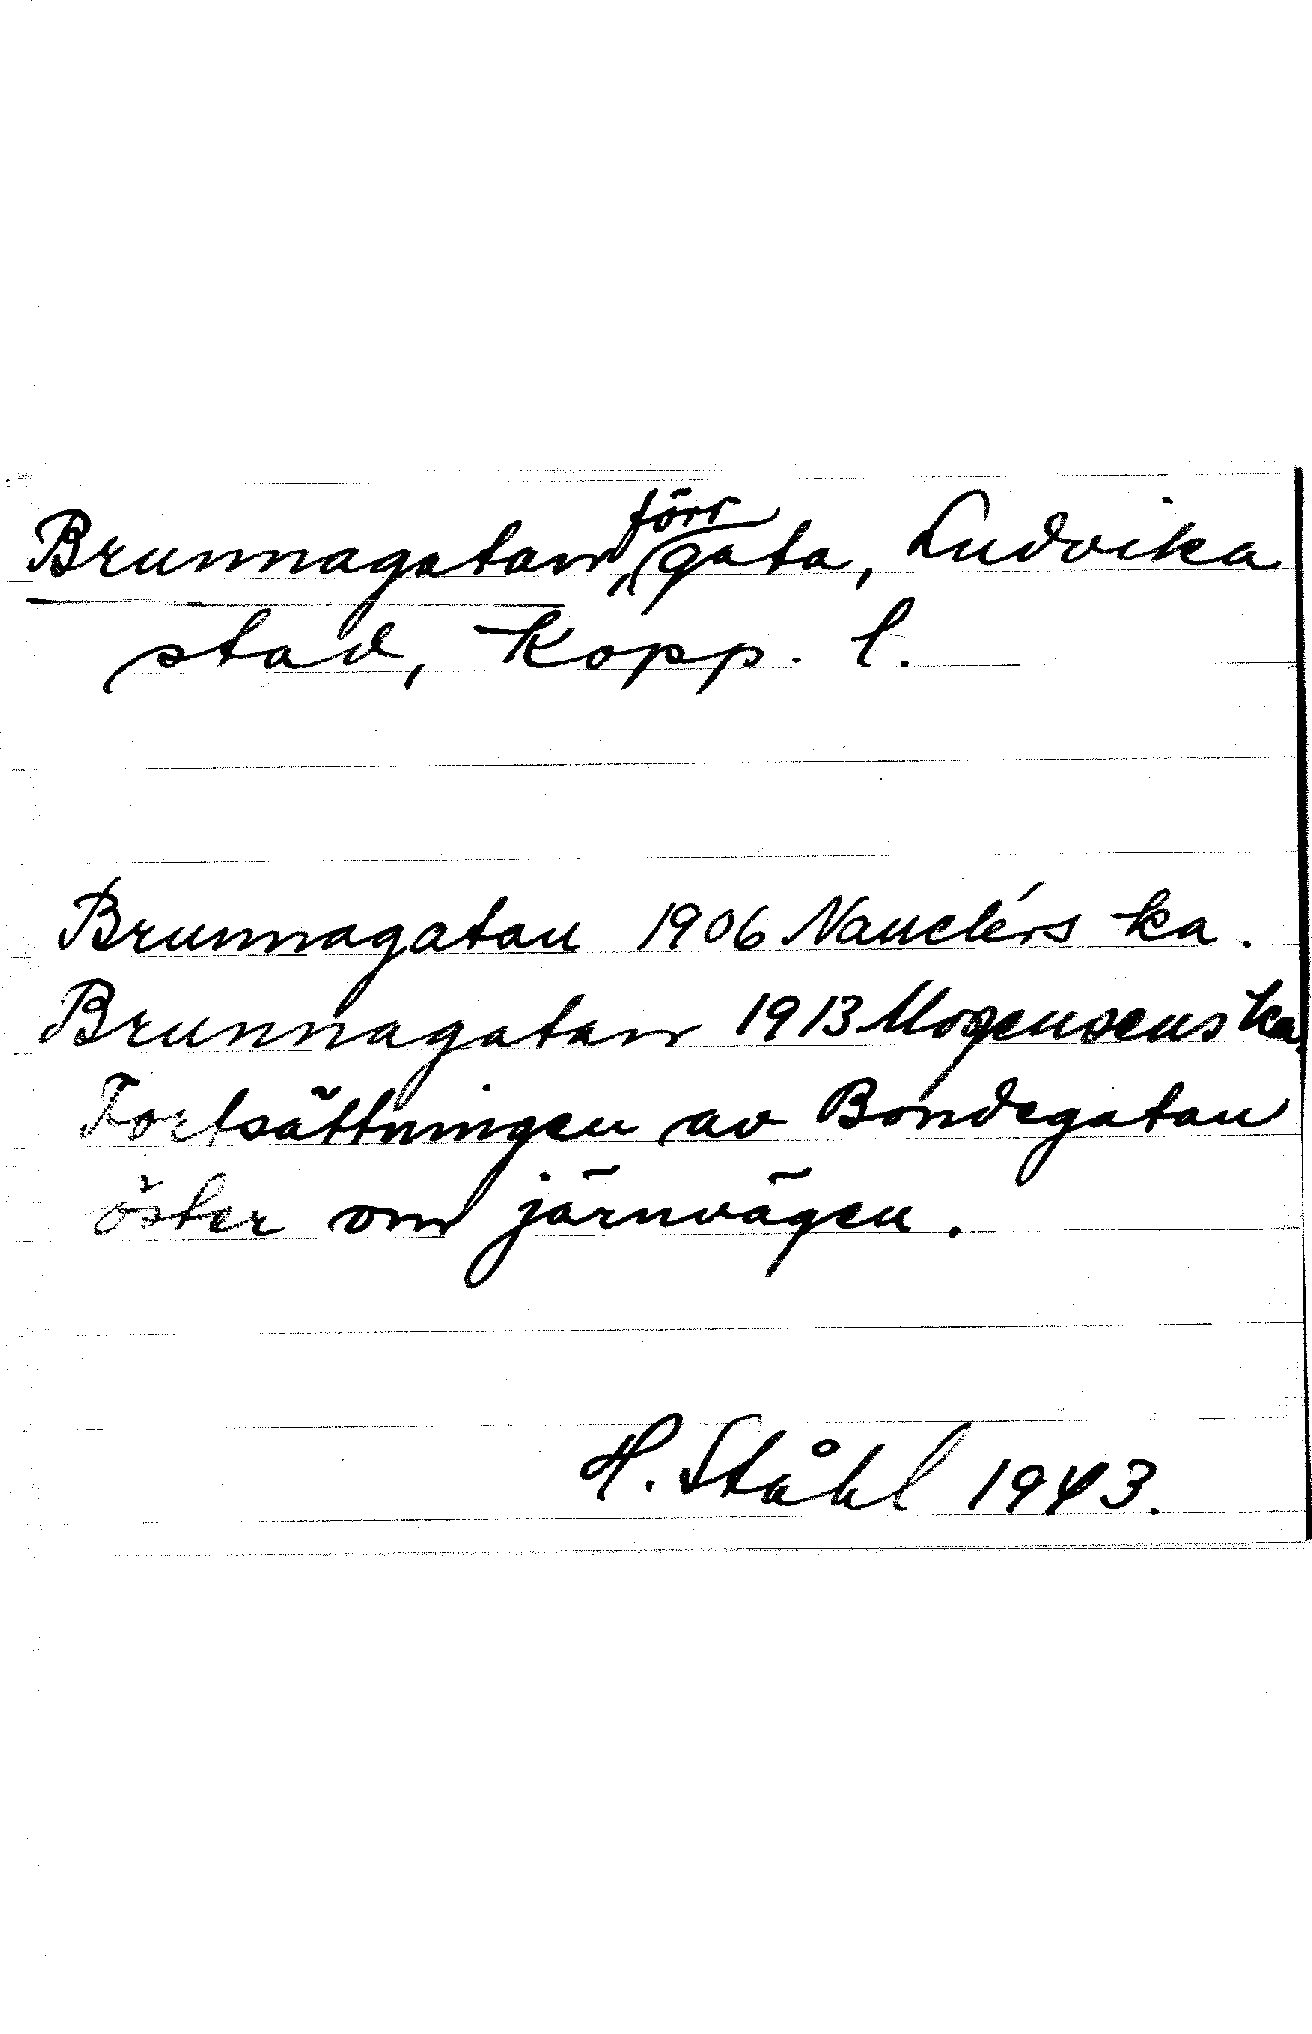 Brunnagatan, förr gata, Ludvika
stad, Kopp. l.
Brunnagatan 1906 Nauclérs ka.
Brunnagatan 1913 Mogensens ka.
Fortsättningen av Bondegatan
öster om järnvägen.
H. Ståhl 1943.